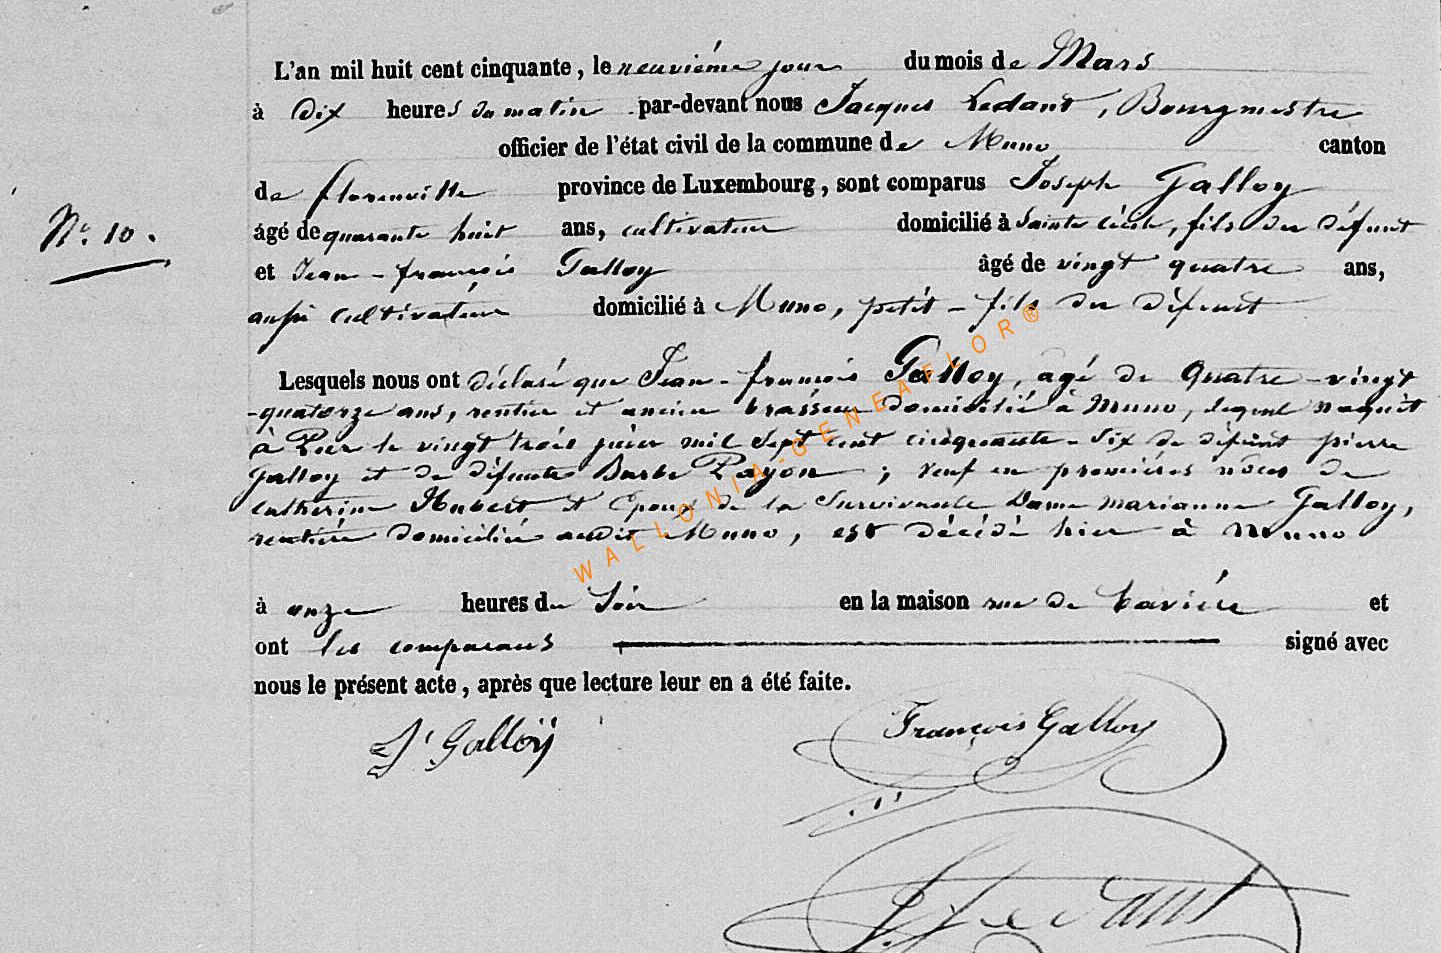 L'an mil huit cent cinquante, le neuvième jour du mois de Mars
à dix heures du matin par-devant nous Jacques Ledant, Bourgmestre
officier de l'état civil de la commune de Muno canton
de florenville province de Luxembourg, sont comparus Joseph Galloy
N.° 10.
âgé de quarante huit ans, cultivateur domicilié à Sainte Cécile, fils du défunt
et Jean-françois Galloy âgé de vingt quatre ans,
aussi cultivateur domicilié à Muno, petit-fils du défunt
Lesquels nous ont déclaré que Jean-françois Galloy, agé de Quatre-vingt
-quatorze ans, rentier et ancien brasseur domicilié à Muno, lequel naquit
à le vingt trois mil sept cent cinquante-six de défunt pierre
Galloy et de défunte Barbe Payon; veuf en premières noces de
Catherine Hubert et Epoux de la Survivante Dame marianne Galloy,
rentière domiciliée audit Muno, est décédé hier à Muno
à onze heures du soir en la maison rue de et
ont les comparans signé avec
nous le présent acte, après que lecture leur en a été faite.
J. Galloÿ
François Galloy
J Ledant
WALLONIA-GENEAFLOR®